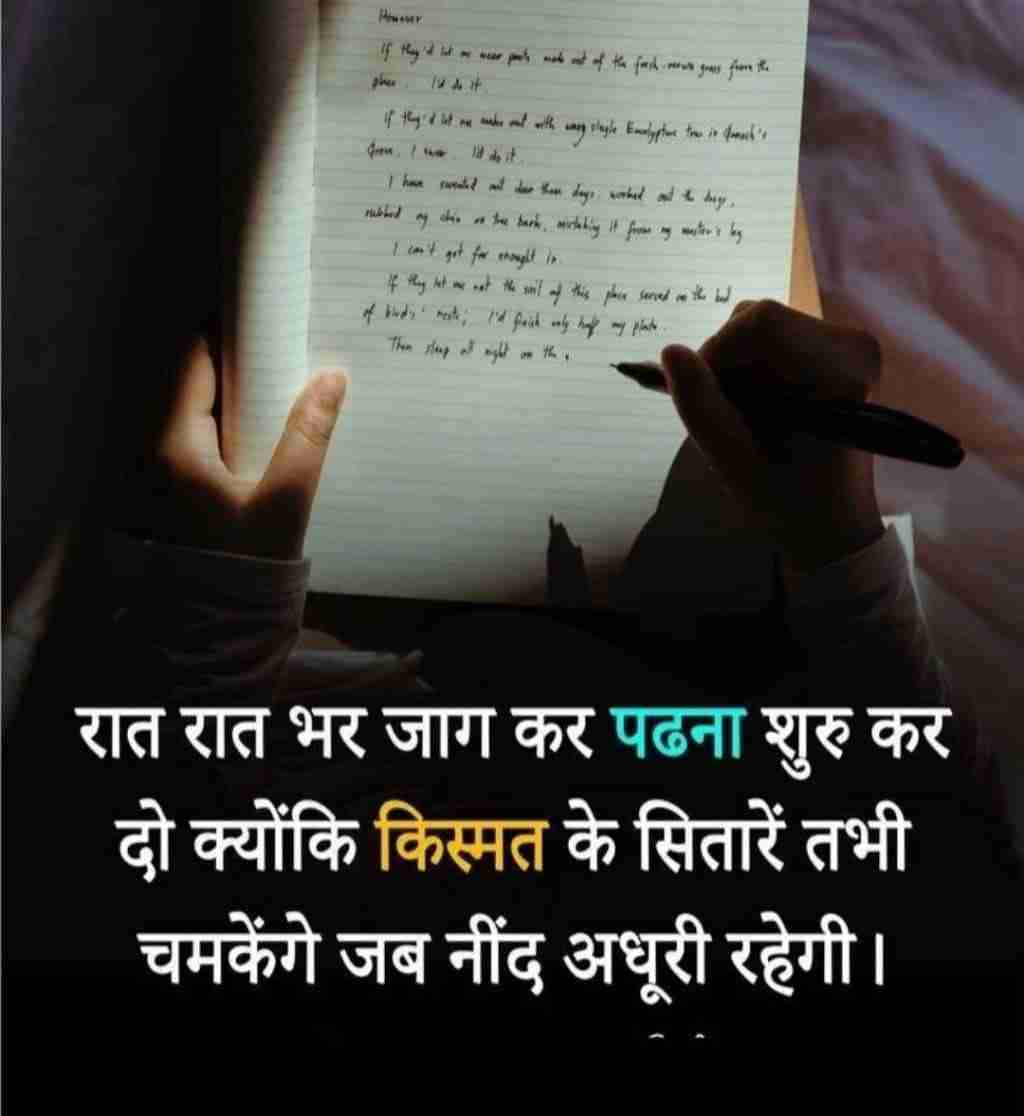 However
If they'd let me wear pants made out of the fresh-woven grass from the
place. I'd do it.
If they'd let me make out with every single Eucalyptus tree in
Grove, I swear. I'd do it.
I have sweated out dear than days, worked out the days,
rubbed my chin on tree bark, mistaking it from my master's leg
I can't get far enought in.
If they let me eat the soil of this place served on the bed
of bird's nests; I'd finish only half my plate.
Then sleep all night on the
रात रात भर जाग कर पढना शुरु कर
दो क्योंकि किस्मत के सितारें तभी
चमकेंगे जब नींद अधूरी रहेगी।